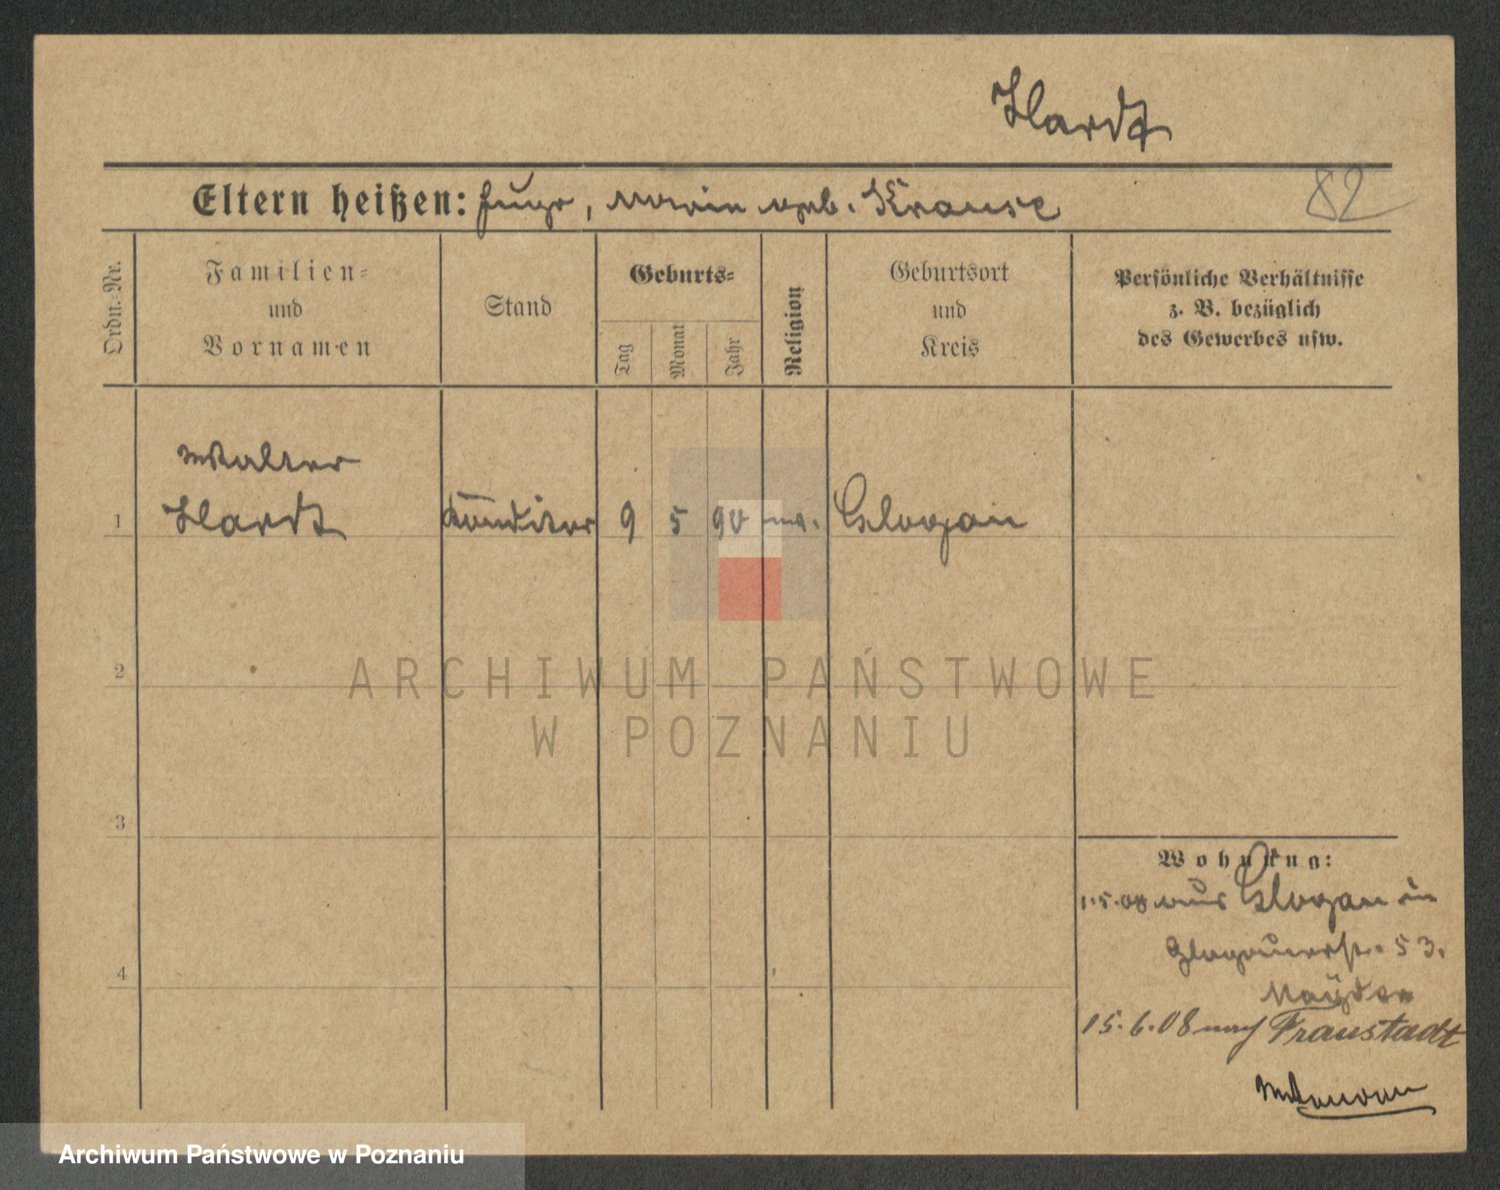 Hardt
82
Eltern heißen: Hugo, Marie geb. Krause
Ordn.-Nr.
Familien-
und
Vornamen
Stand
Geburts-
Tag
Monat
Jahr
Religion
Geburtsort
und
Kreis
Persönliche Verhältnisse
z. B. bezüglich
des Gewerbes usw.
Walter
1 Hardt Konditor 9 5 90 Glogau
2
ARCHIWUM PAŃSTWOWE
W POZNANIU
3
Wohnung:
1.5.08 aus Glogau in
Glogauerstr. 53.
4
15.6.08 nach Fraustadt
Archiwum Państwowe w Poznaniu